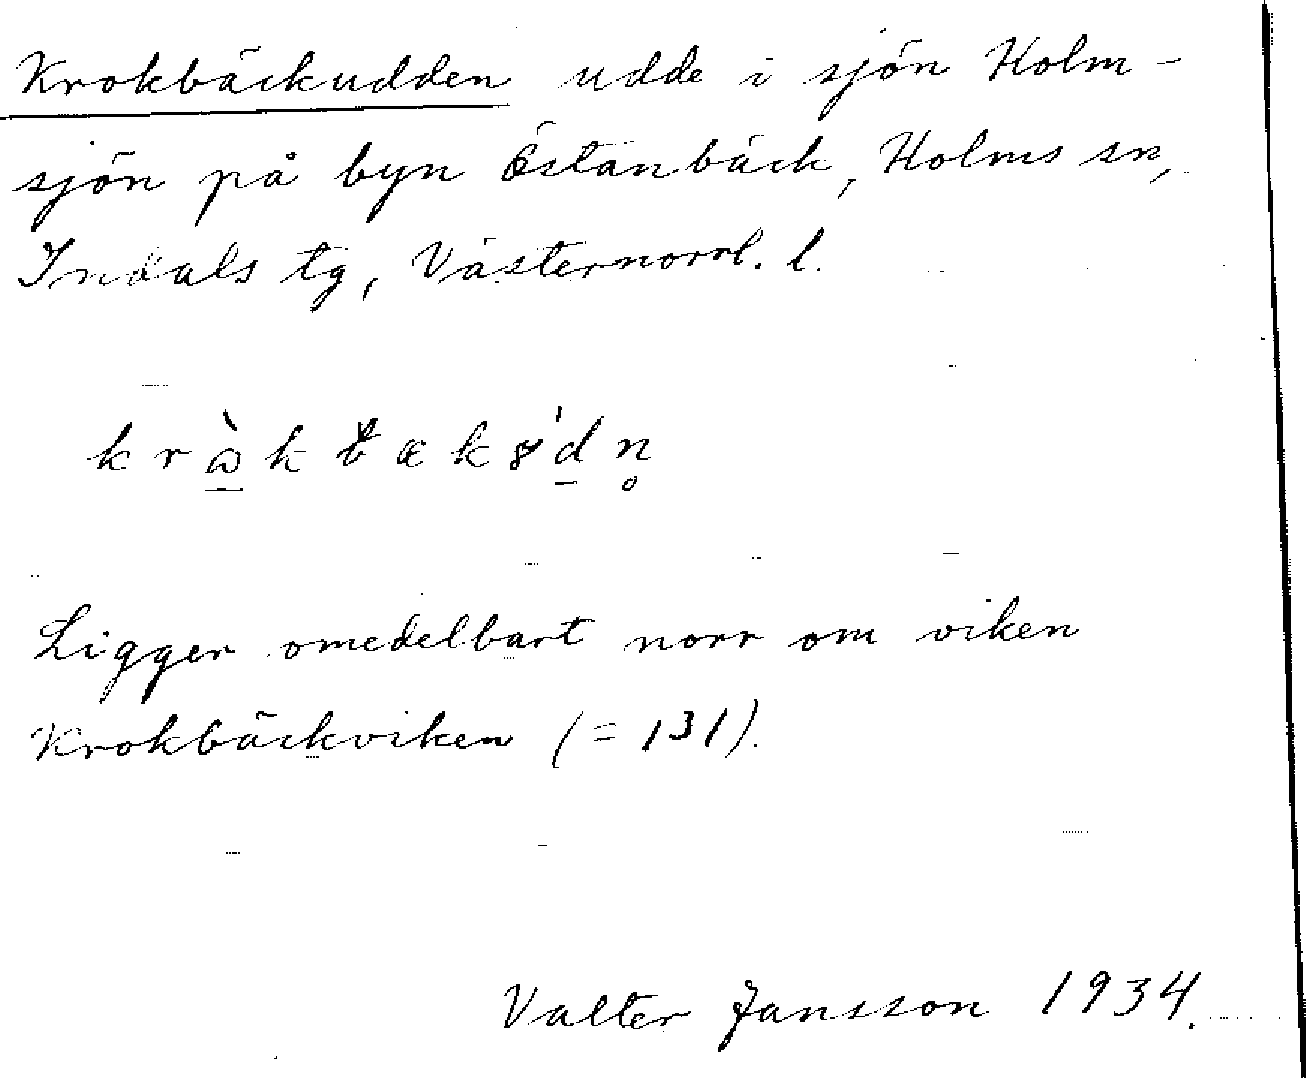 Krokbäckudden udde i sjön Holm-
sjön på byn Östanbäck, Holms sn,
Indals tg, Västernorrl. l.
Ligger omedelbart norr om viken
Krokbäckviken (= 131).
Valter Jansson 1934.